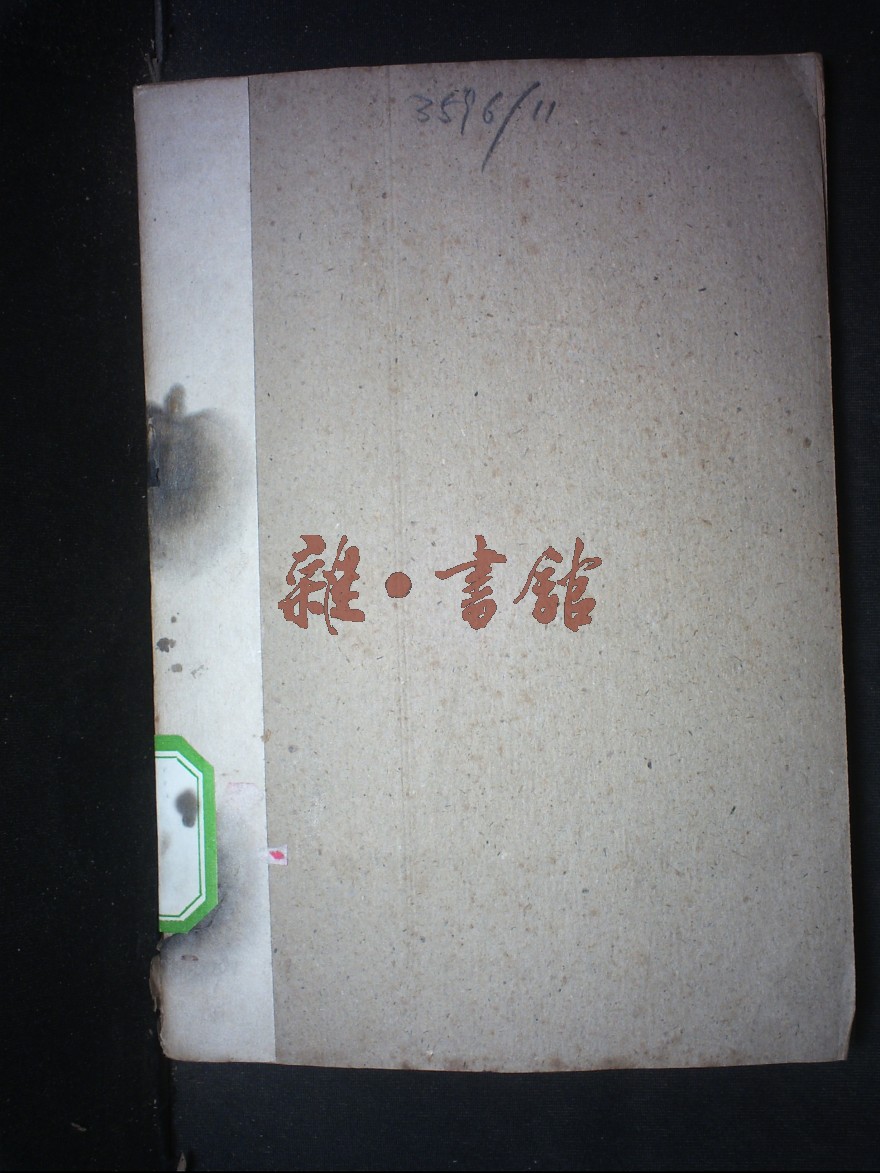 3596/11
雜·書館